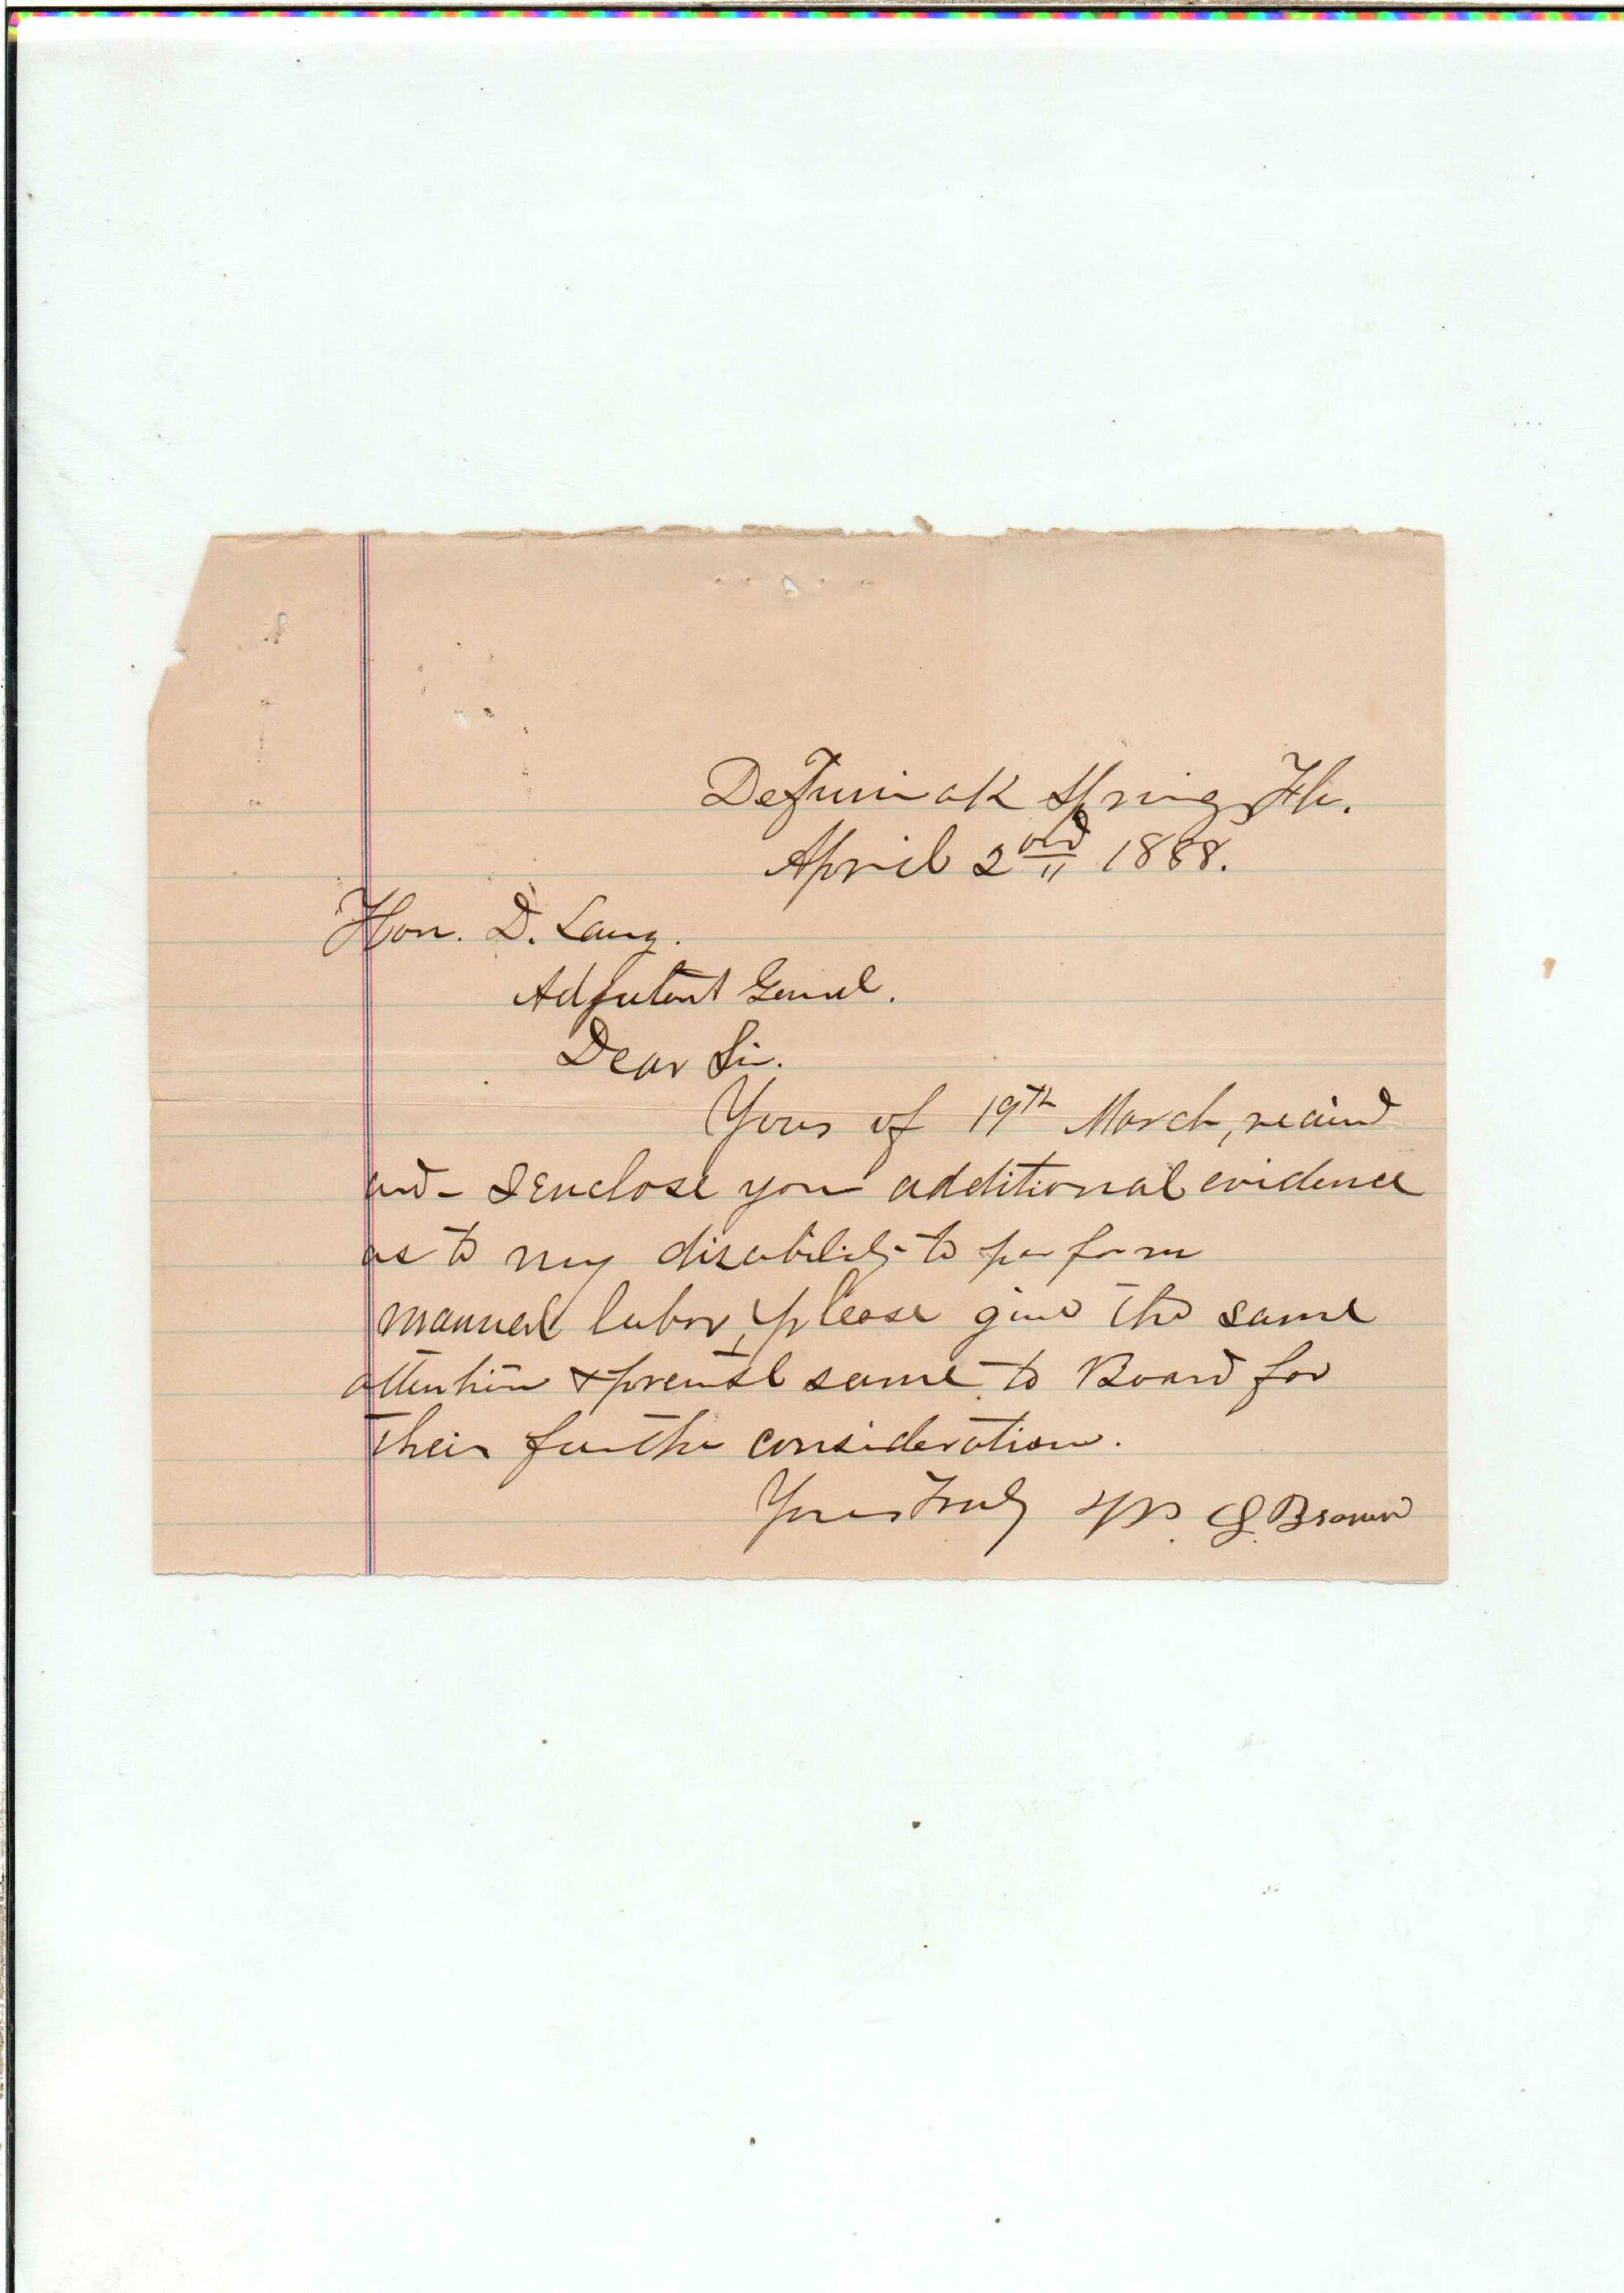 DeFuniak Springs Fla.
April 2nd 1888.
Hon. D. Lang.
Adjutant Genul.
Dear Sir.
Yours of 19th March, recievd
and - I Enclose you additional evidence
as to my disability to perform
manuel labor, please give the same
attention & present same to Board for
their further consideration.
Yours Truly J. Brown